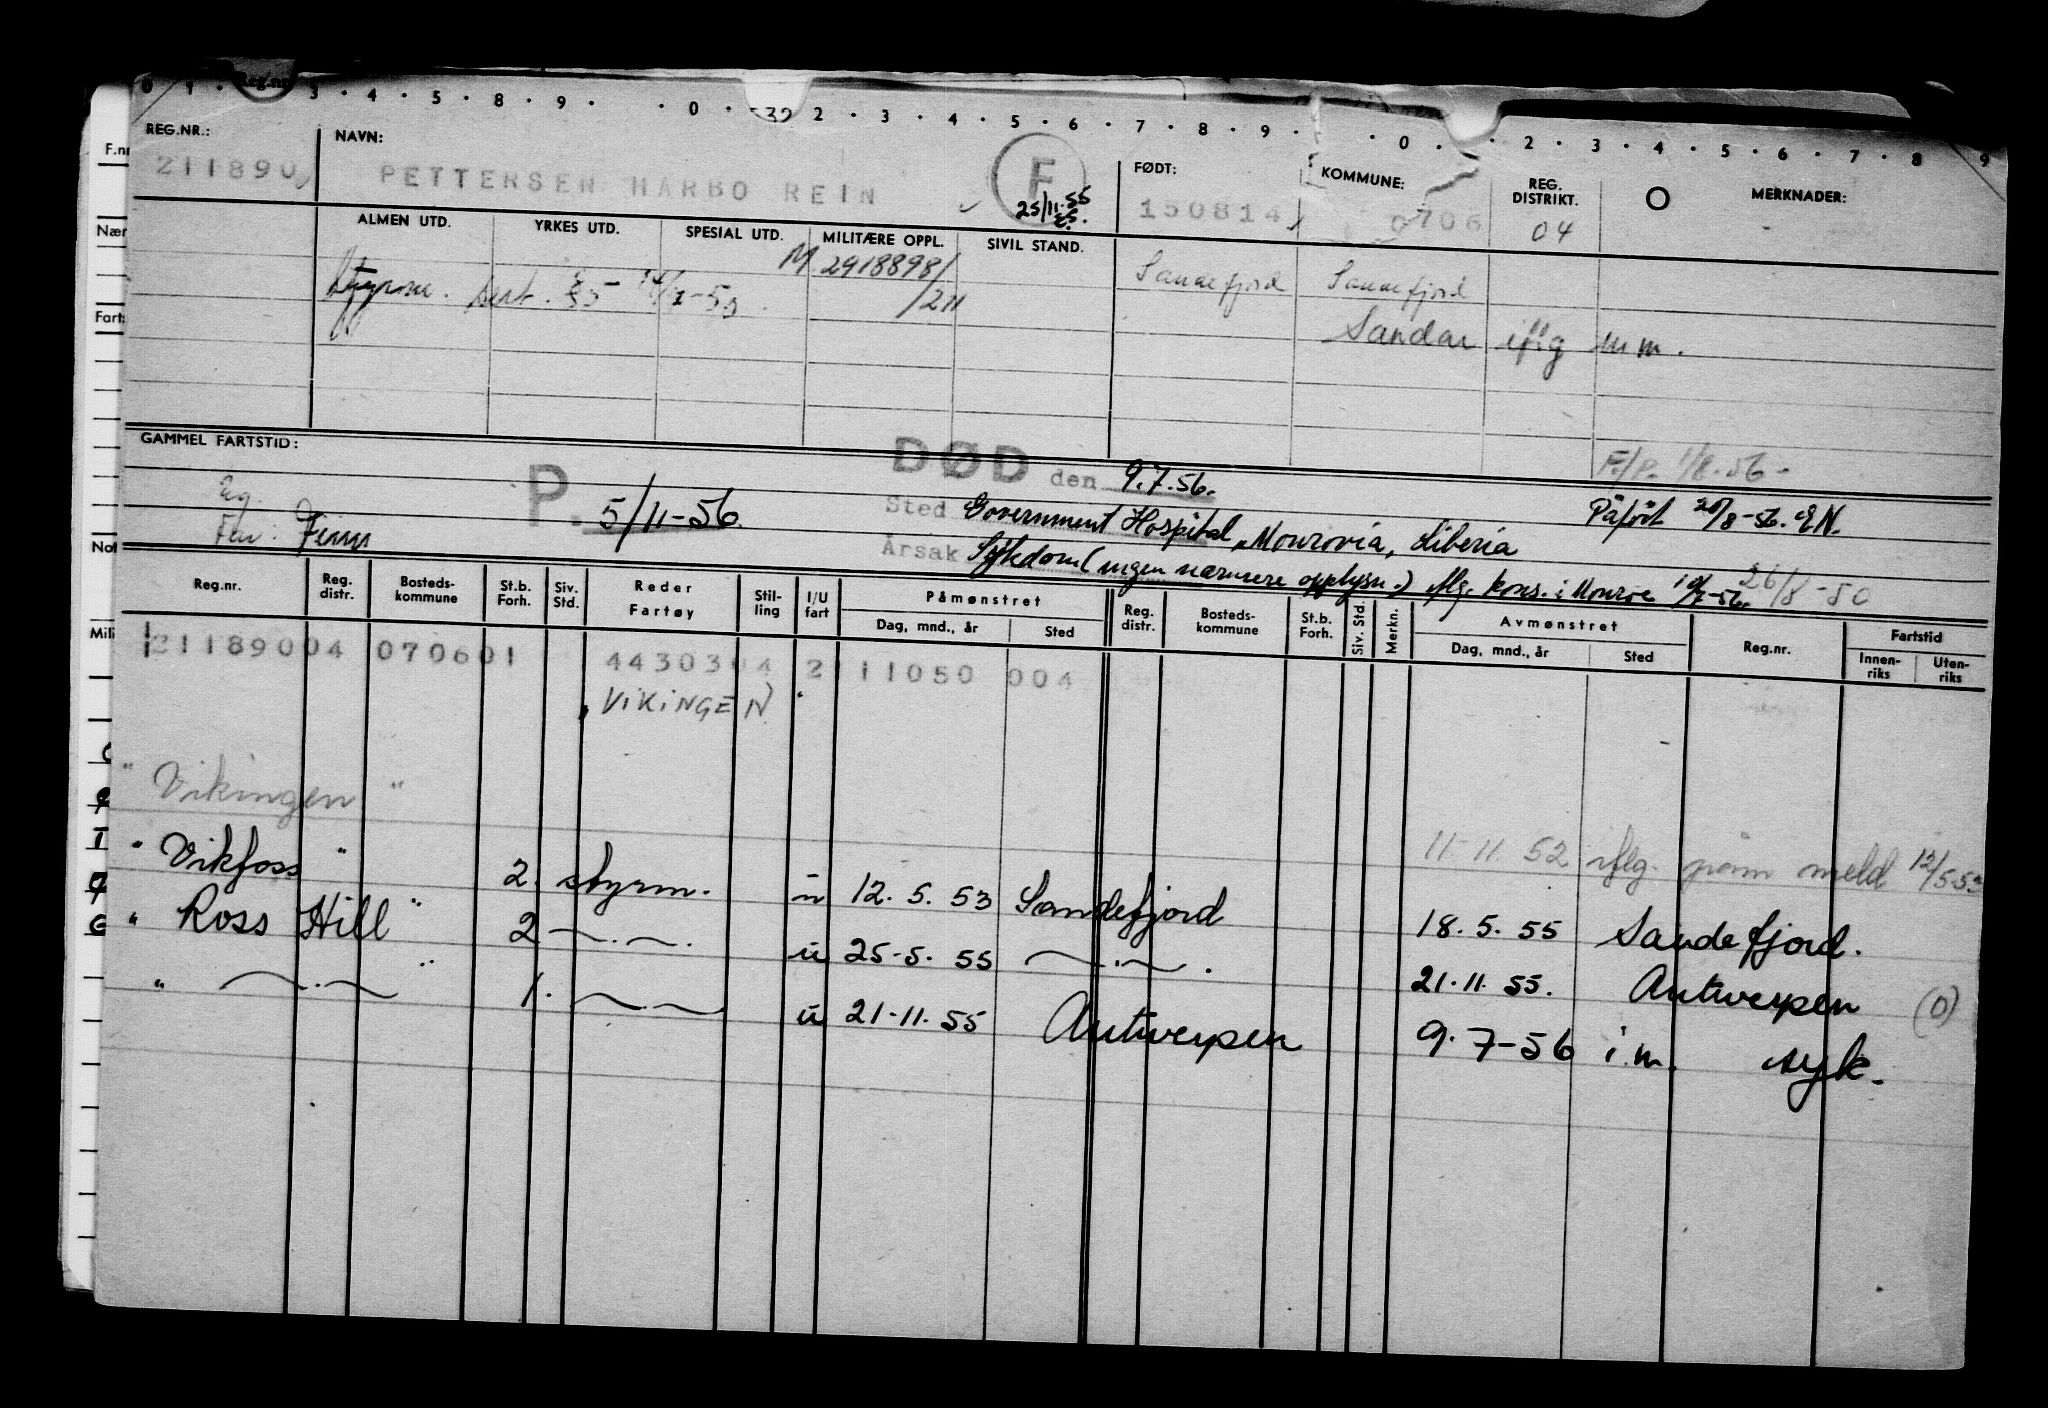 0 1 Reg.nr 3 4 5 8 9 0 32 2 3 4 5 6 7 8 9 0 2 3 4 5 6 7 8 9
REG.NR.: NAVN: FØDT: KOMMUNE: REG. DISTRIKT. MERKNADER:
211890 PETTERSEN HARBO REIN F 25/11-55 150814 0706 04
ALMEN UTD. YRKES UTD. SPESIAL UTD. MILITÆRE OPPL. SIVIL STAND.
M 2918898/ Sandefjord Sandefjord
Styrm. sert. /211
Sandar iflg m.m.
F./P. 1/8-56-
GAMMEL FARTSTID: DØD den 9.7.56.
P. 5/11-56 Sted Government Hospital, Monrovia, Liberia Påført 20/8-56. EN.
Far: Finn Årsak Sykdom (ingen nærmere opplysn.) iflg. kons. i Monrov 26/8-50
Reg.nr. Reg. distr. Bosteds- kommune St.b. Forh. Siv. Std. Reder Fartøy Stil- ling I/U fart Påmønstret Dag, mnd., år Sted Reg. distr. Bosteds- kommune St.b. Forh. Siv. Std. Merkn. Avmønstret Dag, mnd., år Sted Reg.nr. Fartstid Innen- riks Uten- riks
21189004 070601 4430304 2 11050 004
"VIKINGEN"
"Vikingen" 11-11 52 iflg. påm meld 12/5-53
"Vikfoss" 2. styrm. u 12.5.53 Sandefjord 18.5.55 Sandefjord.
"Ross Hill" 2 —.—. u 25-5.55 —.—. 21.11.55. Antwerpen (0)
" —.— " 1. —.— u 21-11.55 Antwerpen 9.7-56 i.m. syk.